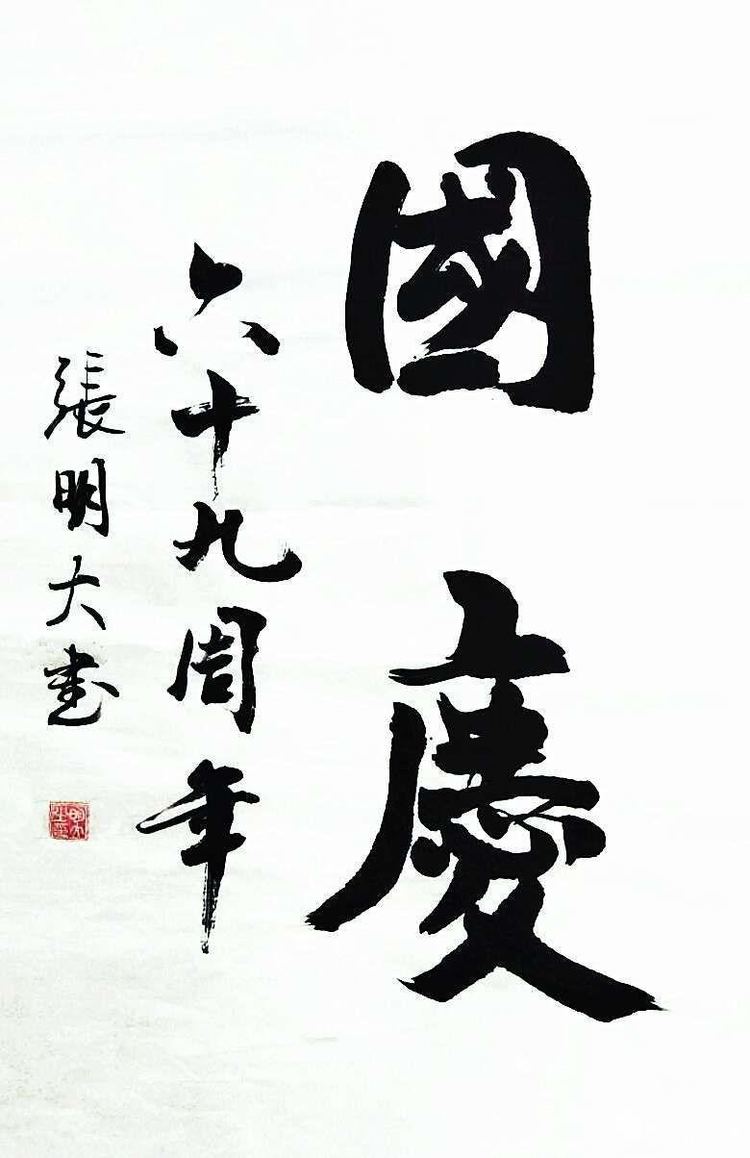 國慶
六十九周年
張明大書